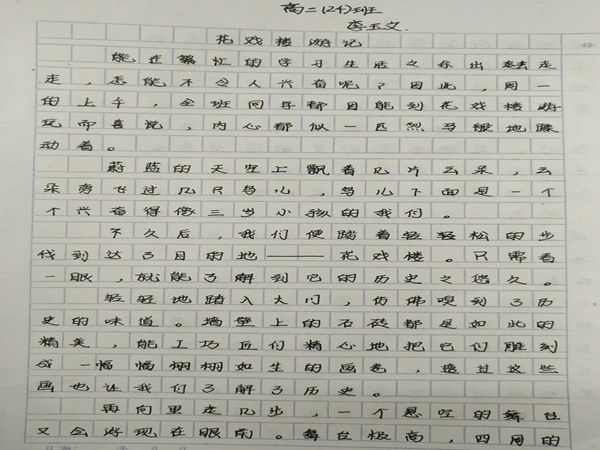 高二(24)班
李玉文
花戏楼游记
能在繁忙的学习生活之余出去走
走，怎能不令人兴奋呢？因此，周一
的上午，全班同学都因能到花戏楼游
玩而喜悦，内心都似一匹烈马般地躁
动着。
蔚蓝的天空上飘着几片云朵，云
朵旁飞过几只鸟儿，鸟儿下面是一个
个兴奋得像三岁小孩的我们。
不久后，我们便踏着轻轻松的步
伐到达了目的地——花戏楼。只需看
一眼，就能了解到它的历史之悠久。
轻轻地踏入大门，仿佛嗅到了历
史的味道。墙壁上的石砖都是如此的
精美，能工巧匠们精心地把它们雕刻
成一幅幅栩栩如生的画卷，透过这些
画也让我们了解了历史。
再向里走几步，一个悬空的舞台
又会浮现在眼前。舞台极高，四周的